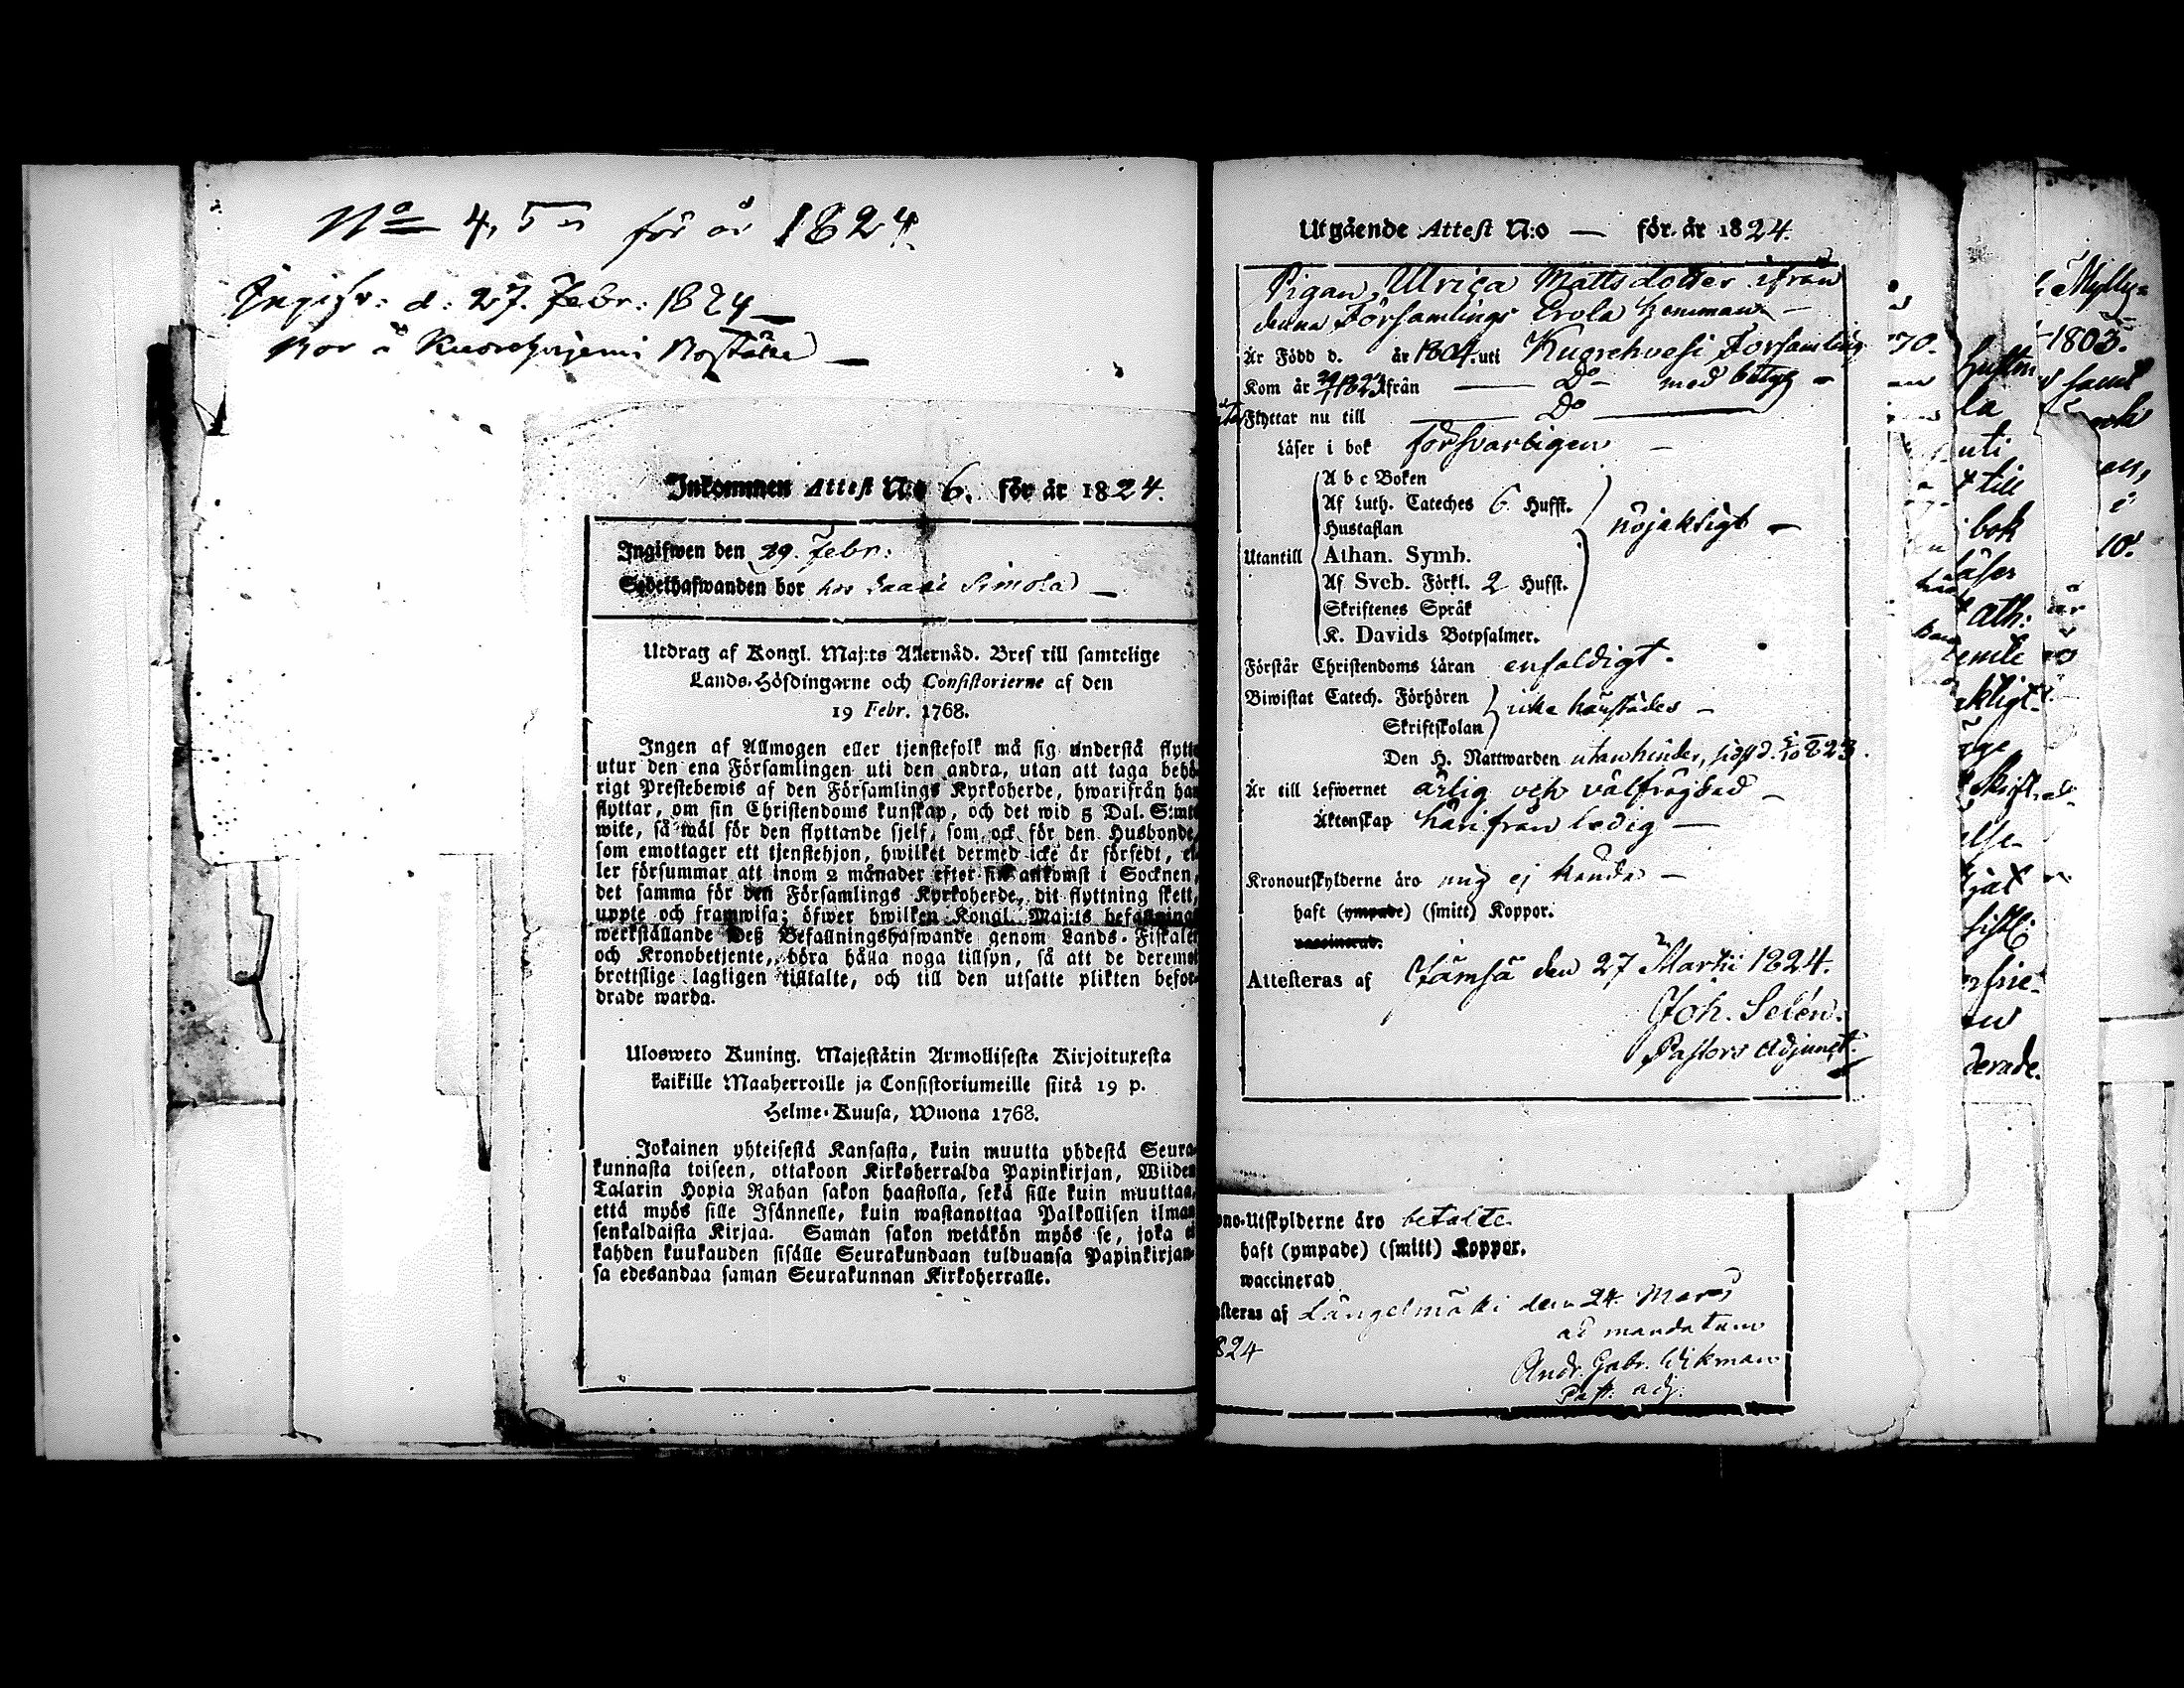 No 4, 5 för år 1824.
Ingifv: d: 27. Febr: 1824
Bor å Kuorehvjemi Boställe
Inkommen Attest N:o 6. för år 1824.
Ingifwen den 29. Febr:
Sedelhafwanden bor hos Simola
Utdrag af Kongl. Maj:ts Allernåd. Bref till samtelige
Lands-Höfdingarne och Consistorierne af den
19 Febr. 1768.
Ingen af Allmogen eller tjenstefolk må sig understå flytt
utur den ena Församlingen uti den andra, utan att taga behö-
rigt Prestebewis af den Församlings Kyrkoherde, hwarifrån han
flyttar, om sin Christendoms kunskap, och det wid 5 Dal. S:mts
wite, så wäl för den flyttande sjelf, som ock för den Husbonde,
som emottager ett tjenstehjon, hwilket dermed icke är försedt, el-
ler försummar att inom 2 månader efter sin ankomst i Socknen,
det samma för den Församlings Kyrkoherde, dit flyttning skett,
uppte och framwisa; öfwer hwilken Kongl. Maj:ts befallnings
werkställande Deß Befallningshafwande genom Lands-Fiskaler
och Kronobetjente, böra hålla noga tillsyn, så att de deremot
brottslige lagligen tilltalte, och till den utsatte plikten befor-
drade warda.
Ulosweto Kuning. Majestätin Armollisesta Kirjoituxesta
kaikille Maaherroille ja Consistoriumeille siitä 19 p.
Helme-Kuusa, Wuona 1768.
Jokainen yhteisestä Kansasta, kuin muutta yhdestä Seura-
kunnasta toiseen, ottakoon Kirkoherralda Papinkirjan, Wiiden
Talarin Hopia Rahan sakon haastolla, sekä sille kuin muuttaa,
että myös sille Isännelle, kuin wastanottaa Palkollisen ilman
senkaldaista Kirjaa. Saman sakon wetäkön myös se, joka ei
kahden kuukauden sisälle Seurakundaan tulduansa Papinkirjan-
sa edesandaa saman Seurakunnan Kirkoherralle.
Utgående Attest N:o — för år 1824.
Pigan Ulrica Mattsdotter ifrån
denna Församlings Erola Hemman
Är Född d. år 1804. uti Kuorehvesi Församling
Kom år 1823 ifrån Do med betyg
Flyttar nu till Do
Läser i bok försvarligen
A b c Boken
Af Luth. Cateches 6. Hufst.
Hustaflan
Utantill Athan. Symb. nöjaktigt
Af Sveb. Förkl. 2 Hufst.
Skriftenes Språk
K. Davids Botpsalmer.
Förstår Christendoms Läran enfaldigt.
Biwistat Catech. Förhören
Skriftskolan icke härstädes
Den H. Nattwarden utan hinder, sist d. 5/10 823.
Är till Lefwernet ärlig och välfrägdad
Äktenskap härifrån ledig
Kronoutskylderne äro mig ej kända
haft (ympade) (smitt) Koppor.
vaccinerad.
Attesteras af Jämsä den 27 Martii 1824.
Joh. Selén.
Pastors Adjunct.
ono-Utskylderne äro betalte
haft (ympade) (smitt) Koppor.
waccinerad
steras af Längelmäki den 24. Mars
824
ad mandatum
Andr. Gabr. Wikman
Past. adj.
70.
uti
till
bok
läser
ath:
Mylly=
1803.
samt
10.
derade.